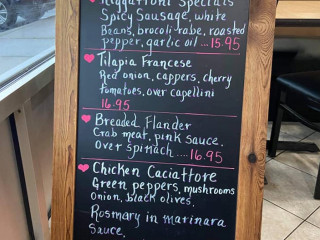 Rigattoni Specials
Spicy Sausage, white
Beans, brocoli rabe, roasted
pepper, garlic oil ...15.95
Tilapia Francese
Red onion, cappers, cherry
tomatoes, over capellini
16.95
Breaded Flander
Crab meat, pink sauce.
Over spinach ....16.95
Chicken Caciattore
Green peppers, mushrooms
Onion, black olives,
Rosmary in marinara
Sauce.